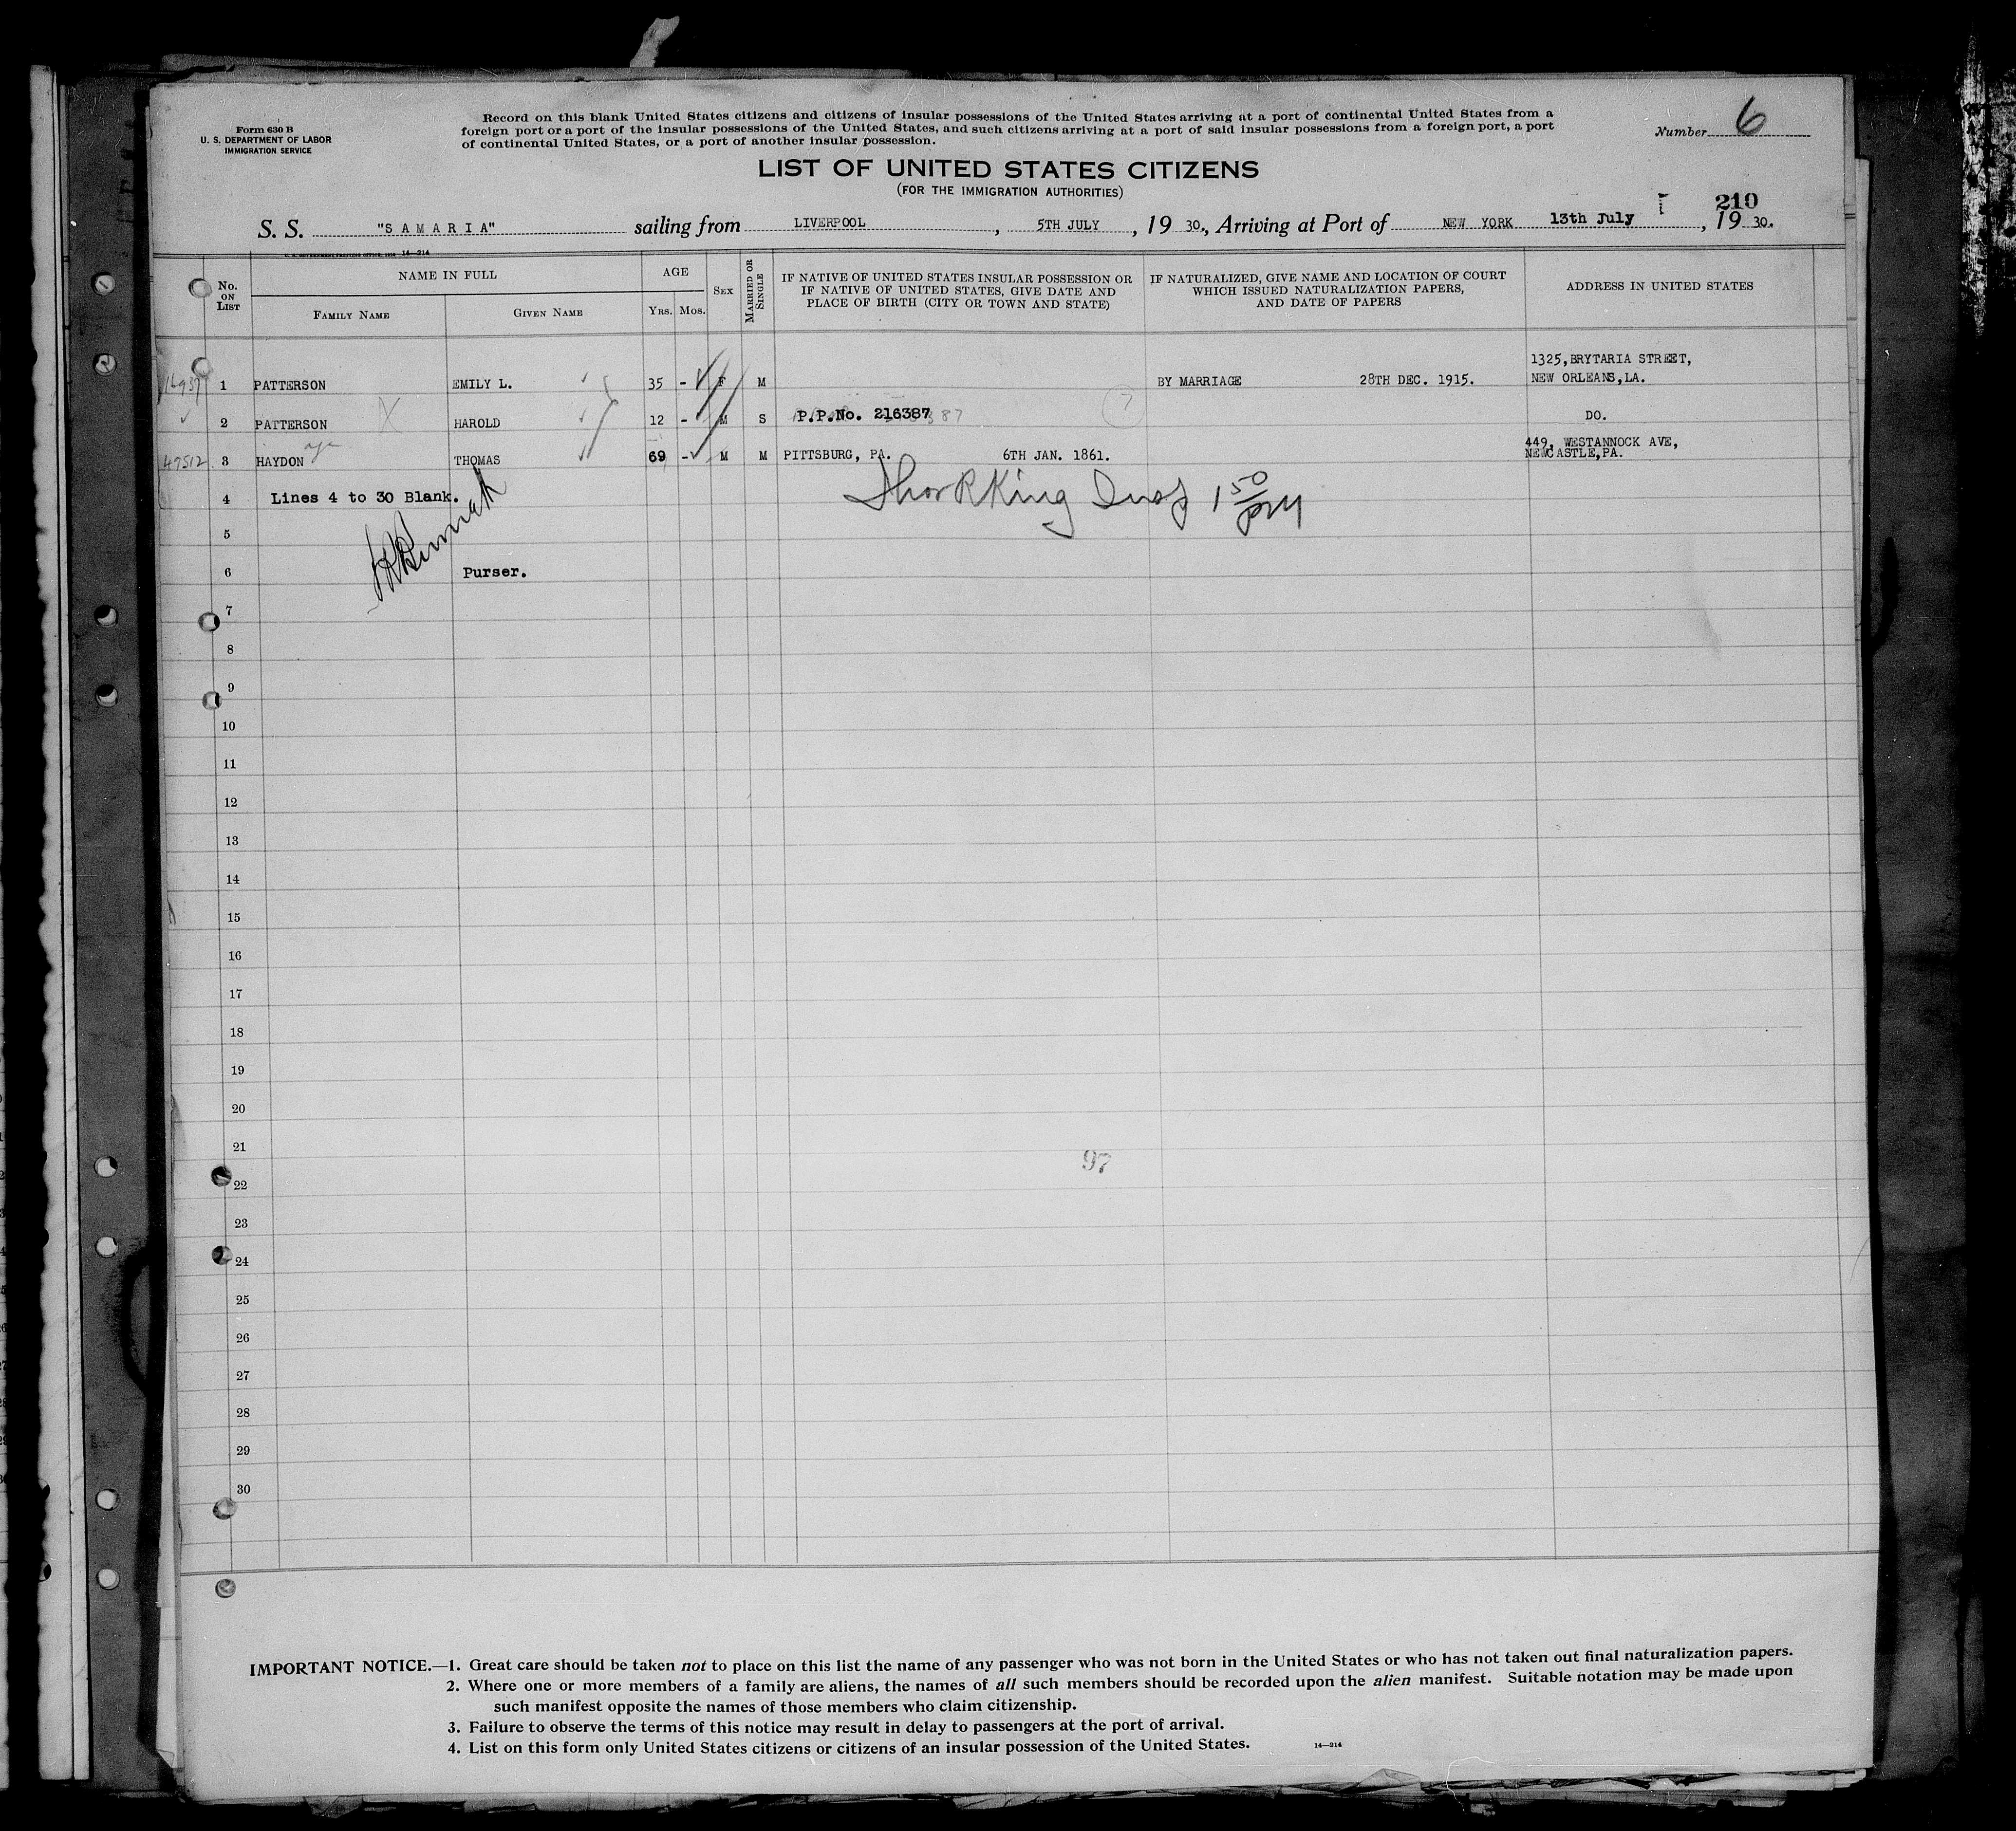 Form 630 B
U. S. DEPARTMENT OF LABOR
IMMIGRATION SERVICE
Record on this blank United States citizens and citizens of insular possessions of the United States arriving at a port of continental United States from a
foreign port or a port of the insular possessions of the United States, and such citizens arriving at a port of said insular possessions from a foreign port, a port
of continental United States, or a port of another insular possession.
Number 6
LIST OF UNITED STATES CITIZENS
(FOR THE IMMIGRATION AUTHORITIES)
210
S. S. "SAMARIA" sailing from LIVERPOOL, 5TH JULY, 19 30., Arriving at Port of NEW YORK 13th July, 19 30.
14—214
No. ON LIST
NAME IN FULL
FAMILY NAME
GIVEN NAME
AGE
YRS. MOS.
SEX
MARRIED OR SINGLE
IF NATIVE OF UNITED STATES INSULAR POSSESSION OR
IF NATIVE OF UNITED STATES, GIVE DATE AND
PLACE OF BIRTH (CITY OR TOWN AND STATE)
IF NATURALIZED, GIVE NAME AND LOCATION OF COURT
WHICH ISSUED NATURALIZATION PAPERS,
AND DATE OF PAPERS
ADDRESS IN UNITED STATES
1325,BRYTARIA STREET,
1 PATTERSON EMILY L. 35 - F M BY MARRIAGE 28TH DEC. 1915. NEW ORLEANS,LA.
2 PATTERSON HAROLD 12 - M S P.P.No. 216387 DO.
449, WESTANNOCK AVE,
47512 3 HAYDON THOMAS 69 - M M PITTSBURG, PA. 6TH JAN. 1861. NEWCASTLE,PA.
4 Lines 4 to 30 Blank.
King Insp 1 50 PM
5
6 Purser.
7
8
9
10
11
12
13
14
15
16
17
18
19
20
21
97
22
23
24
25
26
27
28
29
30
IMPORTANT NOTICE.—1. Great care should be taken not to place on this list the name of any passenger who was not born in the United States or who has not taken out final naturalization papers.
2. Where one or more members of a family are aliens, the names of all such members should be recorded upon the alien manifest. Suitable notation may be made upon
such manifest opposite the names of those members who claim citizenship.
3. Failure to observe the terms of this notice may result in delay to passengers at the port of arrival.
4. List on this form only United States citizens or citizens of an insular possession of the United States.
14—214